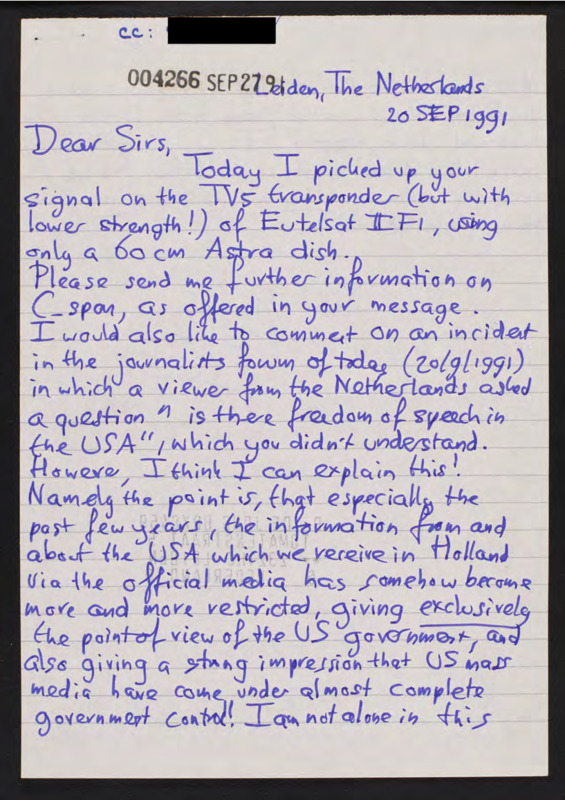 cc:
004266 SEP 27 91
Leiden, The Netherlands
20 SEP 1991
Dear Sirs,
Today I picked up your
signal on the TV5 transponder (but with
lower strength!) of Eutelsat II F1, using
only a 60 cm Astra dish.
Please send me further information on
C-span, as offered in your message.
I would also like to comment on an incident
in the journalists forum of today (20/9/1991)
in which a viewer from the Netherlands asked
a question " is there freedom of speech in
the USA", which you didn't understand.
However, I think I can explain this!
Namely the point is, that especially the
past few years, the information from and
about the USA which we receive in Holland
via the official media has somehow become
more and more restricted, giving exclusively
the point of view of the US government, and
also giving a strong impression that US mass
media have come under almost complete
government control! I am not alone in this